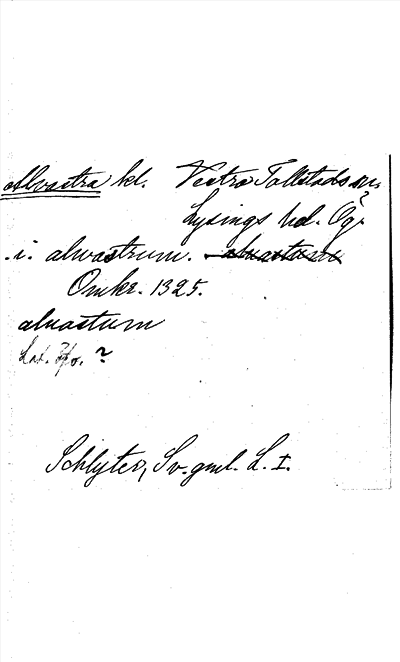 Alvastra kl. Vestra Tollstads sn.
Lysings hd. Ög.
.i. alwastrum. alvastum
Omkr. 1325.
aluastum
Lat. ?
Schlyter, Sv. gml. L. I.